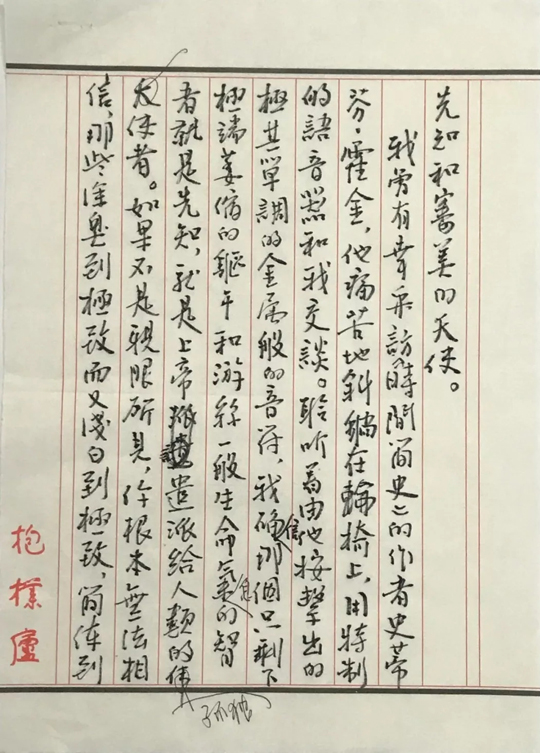 先知和審美的天使。
我曾有幸采訪《時間简史》的作者史蒂
芬·霍金,他痛苦地斜躺在輪椅上,用特制
的語音器和我交談。聆听着由他按擊出的
極其單調的金属般的音符,我确信那個只剩下
極端萎缩的軀干和游絲一般生命氣息的智
者就是先知,就是上帝遣派給人類的偉
孤独
大使者。如果不是親眼所見,你根本無法相
信,那些深奥到極致而又淺白到極致,简到
抱樸廬